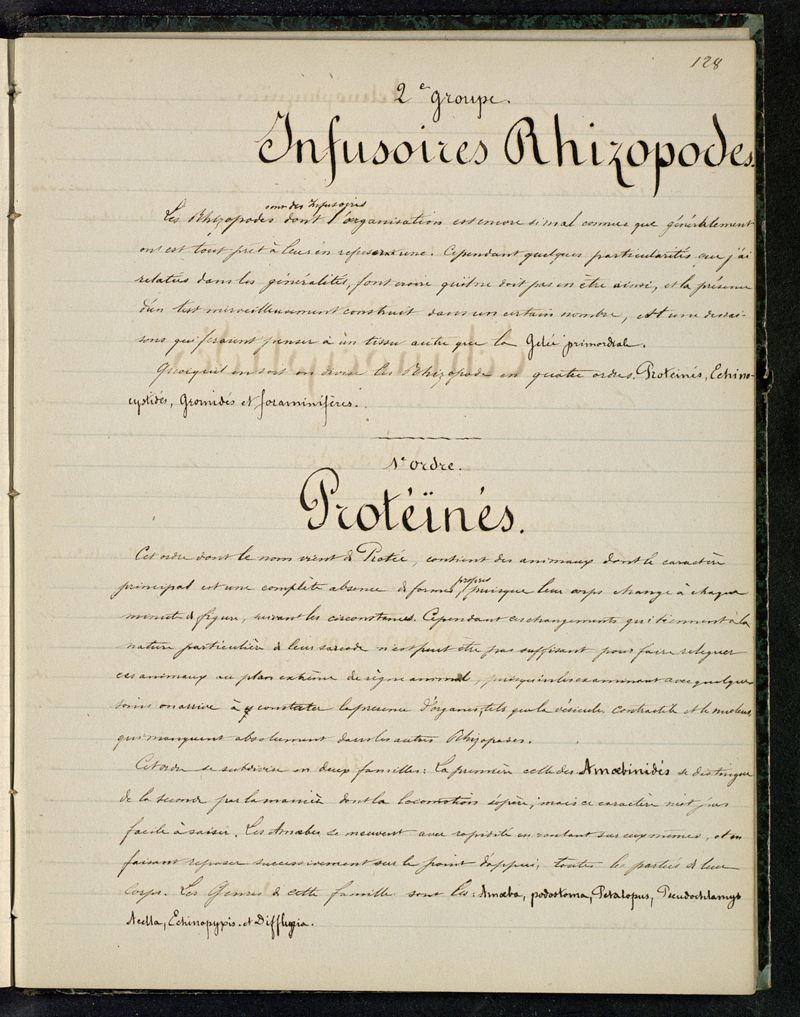 128
2e groupe.
Infusoires Rhizopodes.
sont des Infusoires
Les Rhizopodes dont l'organisation est encore si mal connue que généralement
on est tout prêt à leur en refuser une. Cependant quelques particularités que j'ai
relatées dans les généralités, font croire qu'il ne doit pas en être ainsi, et la présence
d'un test merveilleusement construit dans un certain nombre, est une des rai-
sons qui feraient penser à un tissu autre que la Gelée primordiale.
Quoiqu'il en soit on divise les Rhizopodes en quatre ordres. Protéinés, Echino-
cystidés, Gromidés et foraminifères.
1er ordre.
Protéïnés.
Cet ordre dont le nom vient de Protée, contient des animaux dont le caractère
propres
principal est une complète absence de formes puisque leur corps change à chaque
minute de figure, suivant les circonstances. Cependant ces changements qui tiennent à la
nature particulière de leur sarcode n'est peut être pas suffisant pour faire reléguer
ces animaux au plan extrême du règne animal, puisqu'en les examinant avec quelque
soins on arrive à y constater la présence d'organes, tels que la vésicule contractile et le nucleus,
qui manquent absolument dans les autres Rhizopodes.
Cet ordre se subdivise en deux familles: La première celle des Amœbinidés se distingue
de la seconde par la manière dont la locomotion s'opère; mais ce caractère n'est pas
facile à saisir. Les Amœbes se meuvent avec rapidité en roulant sur eux mêmes, et en
faisant reposer successivement sur le point d'appui, toutes les parties de leur
corps. Les Genres de cette famille sont les: Amœba, podostoma, Petalopus, Pseudochlamys
Acella, Echinopyxis. et Difflugia.